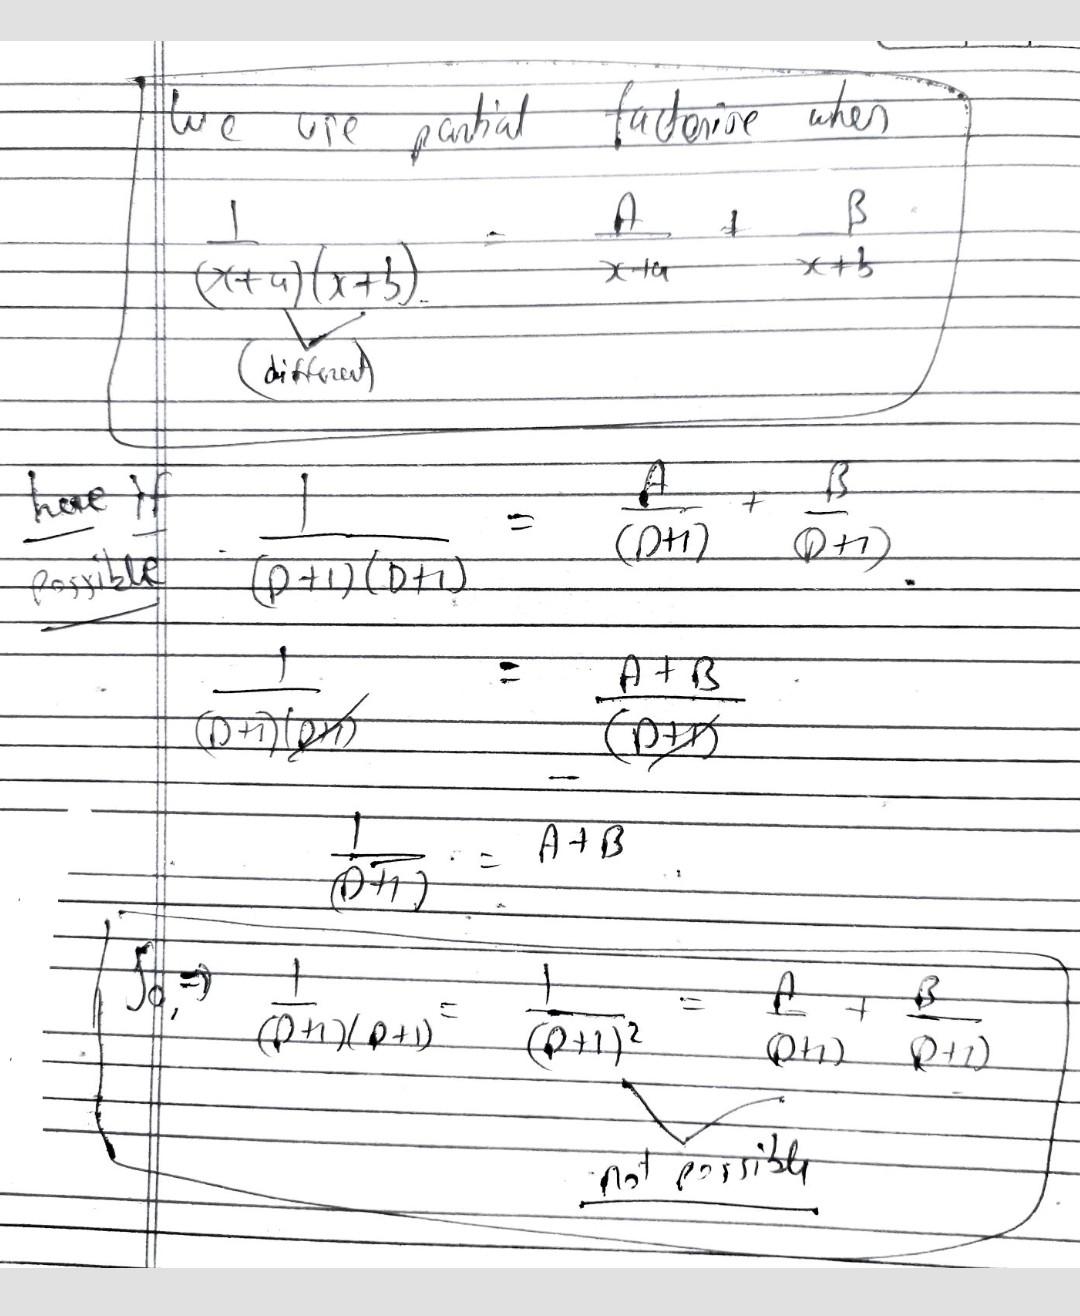 We use partial factorise when
1/(x+a)(x+b) = A/x+a + B/x+b
(different)
here if possible 1/(D+1)(D+1) = A/(D+1) + B/(D+1)
1/(D+1)(D+1) = A+B/(D+1)
1/(D+1) = A+B
So, ⇒ 1/(D+1)(D+1) = 1/(D+1)² = A/(D+1) + B/(D+1)
not possible